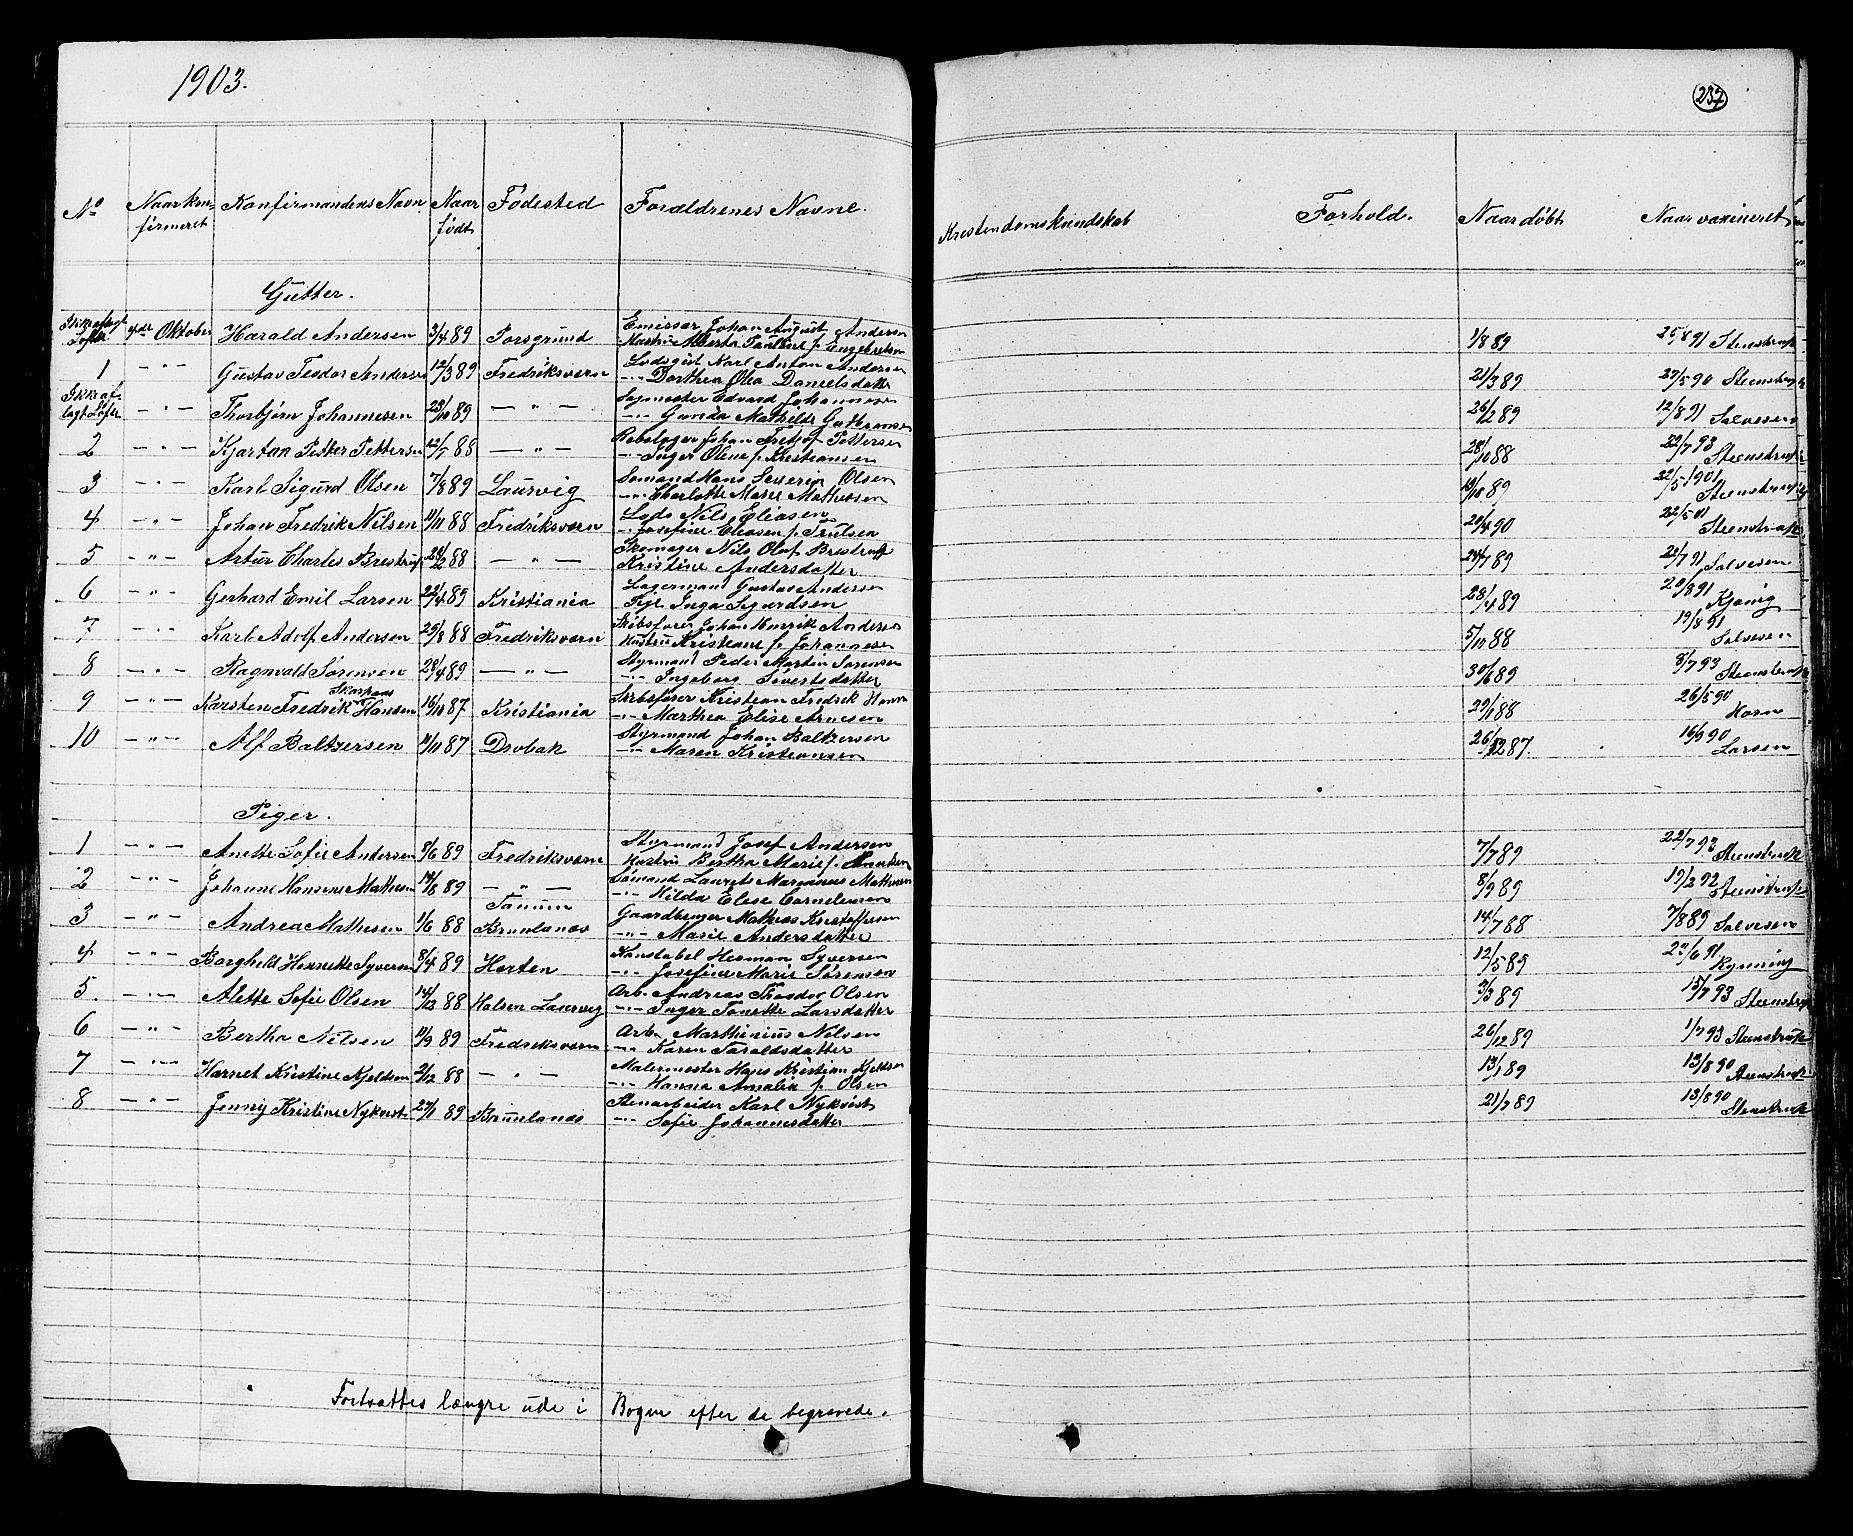 1903.
237
No Naar kon- Konfirmandens Navn Naar Fødested Forældrenes Navne. Kristendomskundskab Forhold. Naar døbt Naar vaxineret
firmeret født
Gutter.
Ikke aflagt 4de Oktober Harald Andersen 3/4 89 Porsgrund Emissær Johan August Andersen 1/8 89 25/8 91 Steenstrup
Løfte Hustru Alberta Pauline f. Engebretsen
1 - " - Gustav Teodor Andersen 12/3 89 Fredriksværn Lodsgut Karl Anton Andersen 21/3 89 27/5 90 Steenstrup
- " - Dorthea Olea Danielsdatter
Ikke af- - " - Thorbjørn Johannesen 23/10 89 - " - Edvard Johannesen 26/2 89 12/8 91 Salvesen
lagt Løfte - " - Gunda Mathilde
2 - " - Kjartan Petter Pettersen 12/7 88 - " - Rebslager Johan Fretjof Pettersen 28/10 88 22/7 93 Steenstrup
- " - Inger Olene f. Kristiansen
3 - " - Karl Sigurd Olsen 7/8 89 Laurvig Sømand Hans Severin Olsen 13/10 89 22/5 1901 Steenstrup
- " - Charlotte Marie Mathesen
4 - " - Johan Fredrik Nilsen 11/11 88 Fredriksværn Lods Nils Eliasen 20/4 90 22/5 01 Steenstrup
- " - Josefine Eleasen f. Trulsen
5 - " - Artur Charles Brestrup 28/12 88 - " - Skomager Nils Olaf Brestrup 24/7 89 22/7 91 Salvesen
Kristine Andersdatter
6 - " - Gerhard Emil Larsen 22/4 89 Kristiania Lagermand Gustav Andersen 28/4 89 20/8 91 Kjønig
Pige Inga Sigurdsen
7 - " - Karl Adolf Andersen 25/8 88 Fredriksværn Skibsfører Johan Henrik Andersen 5/10 88 19/8 91 Salvesen
Hustru Kristiane f. Johannesen
8 - " - Ragnvald Sørensen 28/4 89 - " - Styrmand Peder Martin Sørensen 30/6 89 8/7 93 Steenstrup
- " - Ingeborg Sivertsdatter
9 - " - Karsten Fredrik Hansen 16/10 87 Kristiania Skibsfører Kristian Fredrik Hansen 29/1 88 26/5 90 Horn
- " - Marthea Elise Arnesen
10 - " - Alf Baltzersen 11/11 87 Drøbak Styrmand Johan Baltzersen 26/12 87. 16/9 90 Larsen
- " - Maren Kristiansen
Piger.
1 - " - Anette Sofie Andersen 8/6 89 Fredriksværn Styrmand Josef Andersen 7/7 89 22/7 93 Steenstrup
Hustru Bertha Marie f. Knutsen
2 - " - Johanne Hansine Mathesen 19/8 89 - " - Sømand Laurits Marinius Mathesen 8/9 89 19/2 92 Steenstrup
- " - Hilda Elise Cornelinsen
3 - " - Andrea Mathesen 1/6 88 Tanum Gaardbruger Mathias Kristoffersen 14/7 88 7/8 89 Salvesen
Brunlanæs - " - Marie Andersdatter
4 - " - Borghild Henrette Syversen 8/4 89 Horten Konstabel Herman Syversen 12/5 89 20/6 91 Rynning
- " - Josefine Marie Sørensen
5. - " - Alette Sofie Olsen 14/12 88 Halsen Laurvig Arb. Andreas Theodor Olsen 3/3 89 15/7 93 Steenstrup
- " - Inger Tonette Larsdatter
6 - " - Bertha Nilsen 11/9 89 Fredriksværn Arb. Marthinius Nilsen 26/12 89 1/7 93 Steenstrup
- " - Karen Taraldsdatter
7 - " - Harriet Kristine Kjeldsen 2/12 88 - " - Malermester Hans Kristian Kjeldsen 13/1 89 13/8 90 Steenstrup
- " - Hanna Amalia f. Olsen
8 - " - Jenny Kristine Nykvist 27/1 89 Brunlanæs Stenarbeider Karl Nykvist 21/7 89 13/8 90 Steenstrup
- " - Sofie Johannesdatter
Fortsættes længre ude i Bogen efter de begravede.